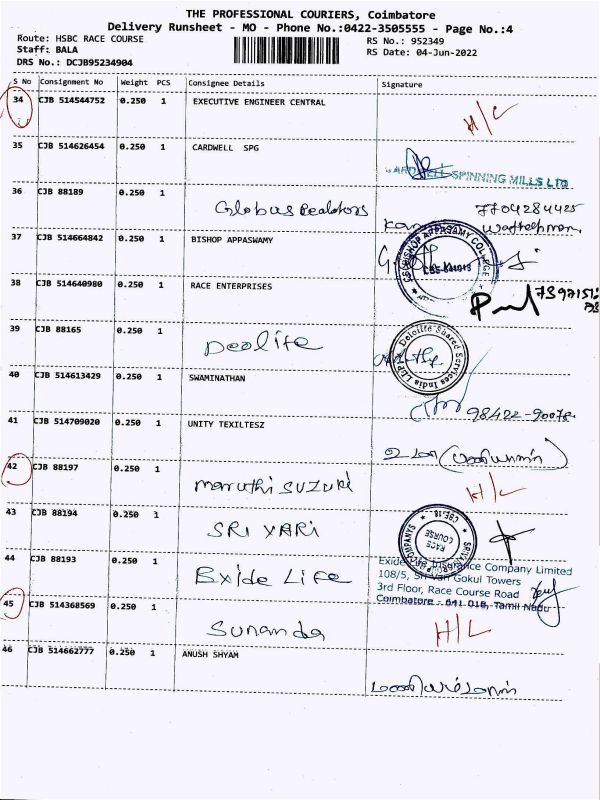 THE PROFESSIONAL COURIERS, Coimbatore
Delivery Runsheet - MO - Phone No.:0422-3505555 - Page No.:4
Route: HSBC RACE COURSE RS No.: 952349
Staff: BALA RS Date: 04-Jun-2022
DRS No.: DCJB95234904
S No Consignment No Weight PCS Consignee Details Signature
34 CJB 514544752 0.250 1 EXECUTIVE ENGINEER CENTRAL H/L
35 CJB 514626454 0.250 1 CARDWELL SPG
SPINNING MILLS LTD
36 CJB 88189 0.250 1 Globus Realators 7704284425
37 CJB 514664842 0.250 1 BISHOP APPASWAMY
CSI BISHOP APPASAMY COLLEGE
38 CJB 514640980 0.250 1 RACE ENTERPRISES
39 CJB 88165 0.250 1 Deolite
Deloitte Shared Services India LLP
40 CJB 514613429 0.250 1 SWAMINATHAN
41 CJB 514709020 0.250 1 UNITY TEXILTESZ
42 CJB 88197 0.250 1 maruthi SUZUKI H/L
43 CJB 88194 0.250 1 SRI VARI
RACE COURSE
44 CJB 88193 0.250 1 Exide Life
Exide Life Insurance Company Limited
108/5, Sri Vari Gokul Towers
3rd Floor, Race Course Road
Coimbatore - 641 018, Tamil Nadu
45 CJB 514368569 0.250 1 Sunanda H/L
46 CJB 514662777 0.250 1 ANUSH SHYAM